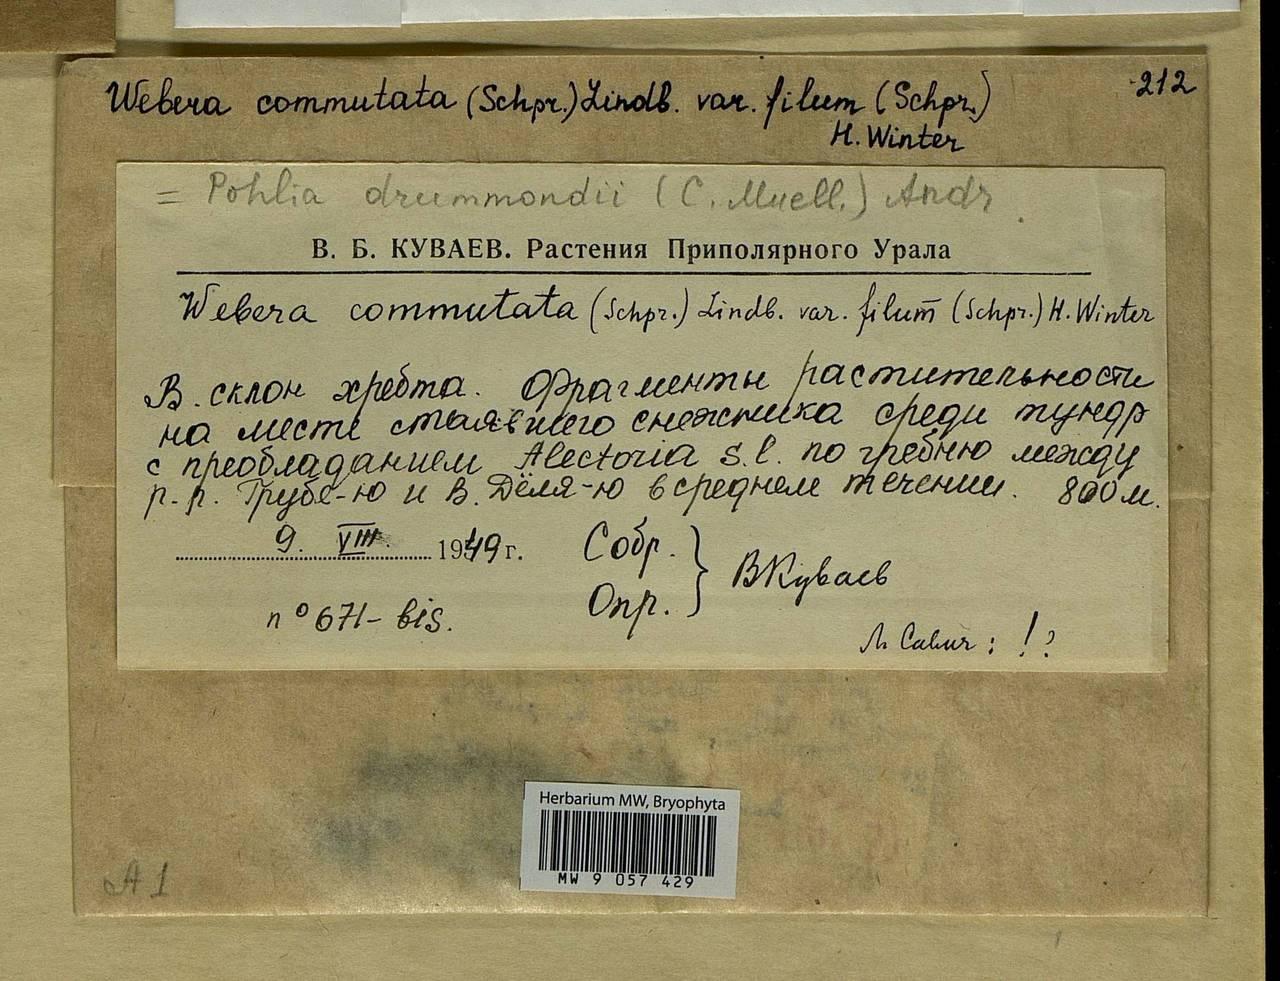 Webera commutata (Schpr.) Lindb. var. filum (Schpr.)
H. Winter
212
= Pohlia drummondii (C. Muell.) Andr.
В. Б. КУВАЕВ. Растения Приполярного Урала
Webera commutata (Schpr.) Lindb. var. filum (Schpr.) H. Winter
В. склон хребта. Фрагменты растительности
на месте стаявшего снежника среди тундр
с преобладанием Alectoria s.l. по гребню между
р.-р. Грубе-ю и В. Дёля-ю в среднем течении. 800 м.
9. VIII. 1949 г.
Собр.
Опр.
В Куваев
nº 671-bis.
Л. Савич: !?
Herbarium MW, Bryophyta
MW 9 057 429
A 1